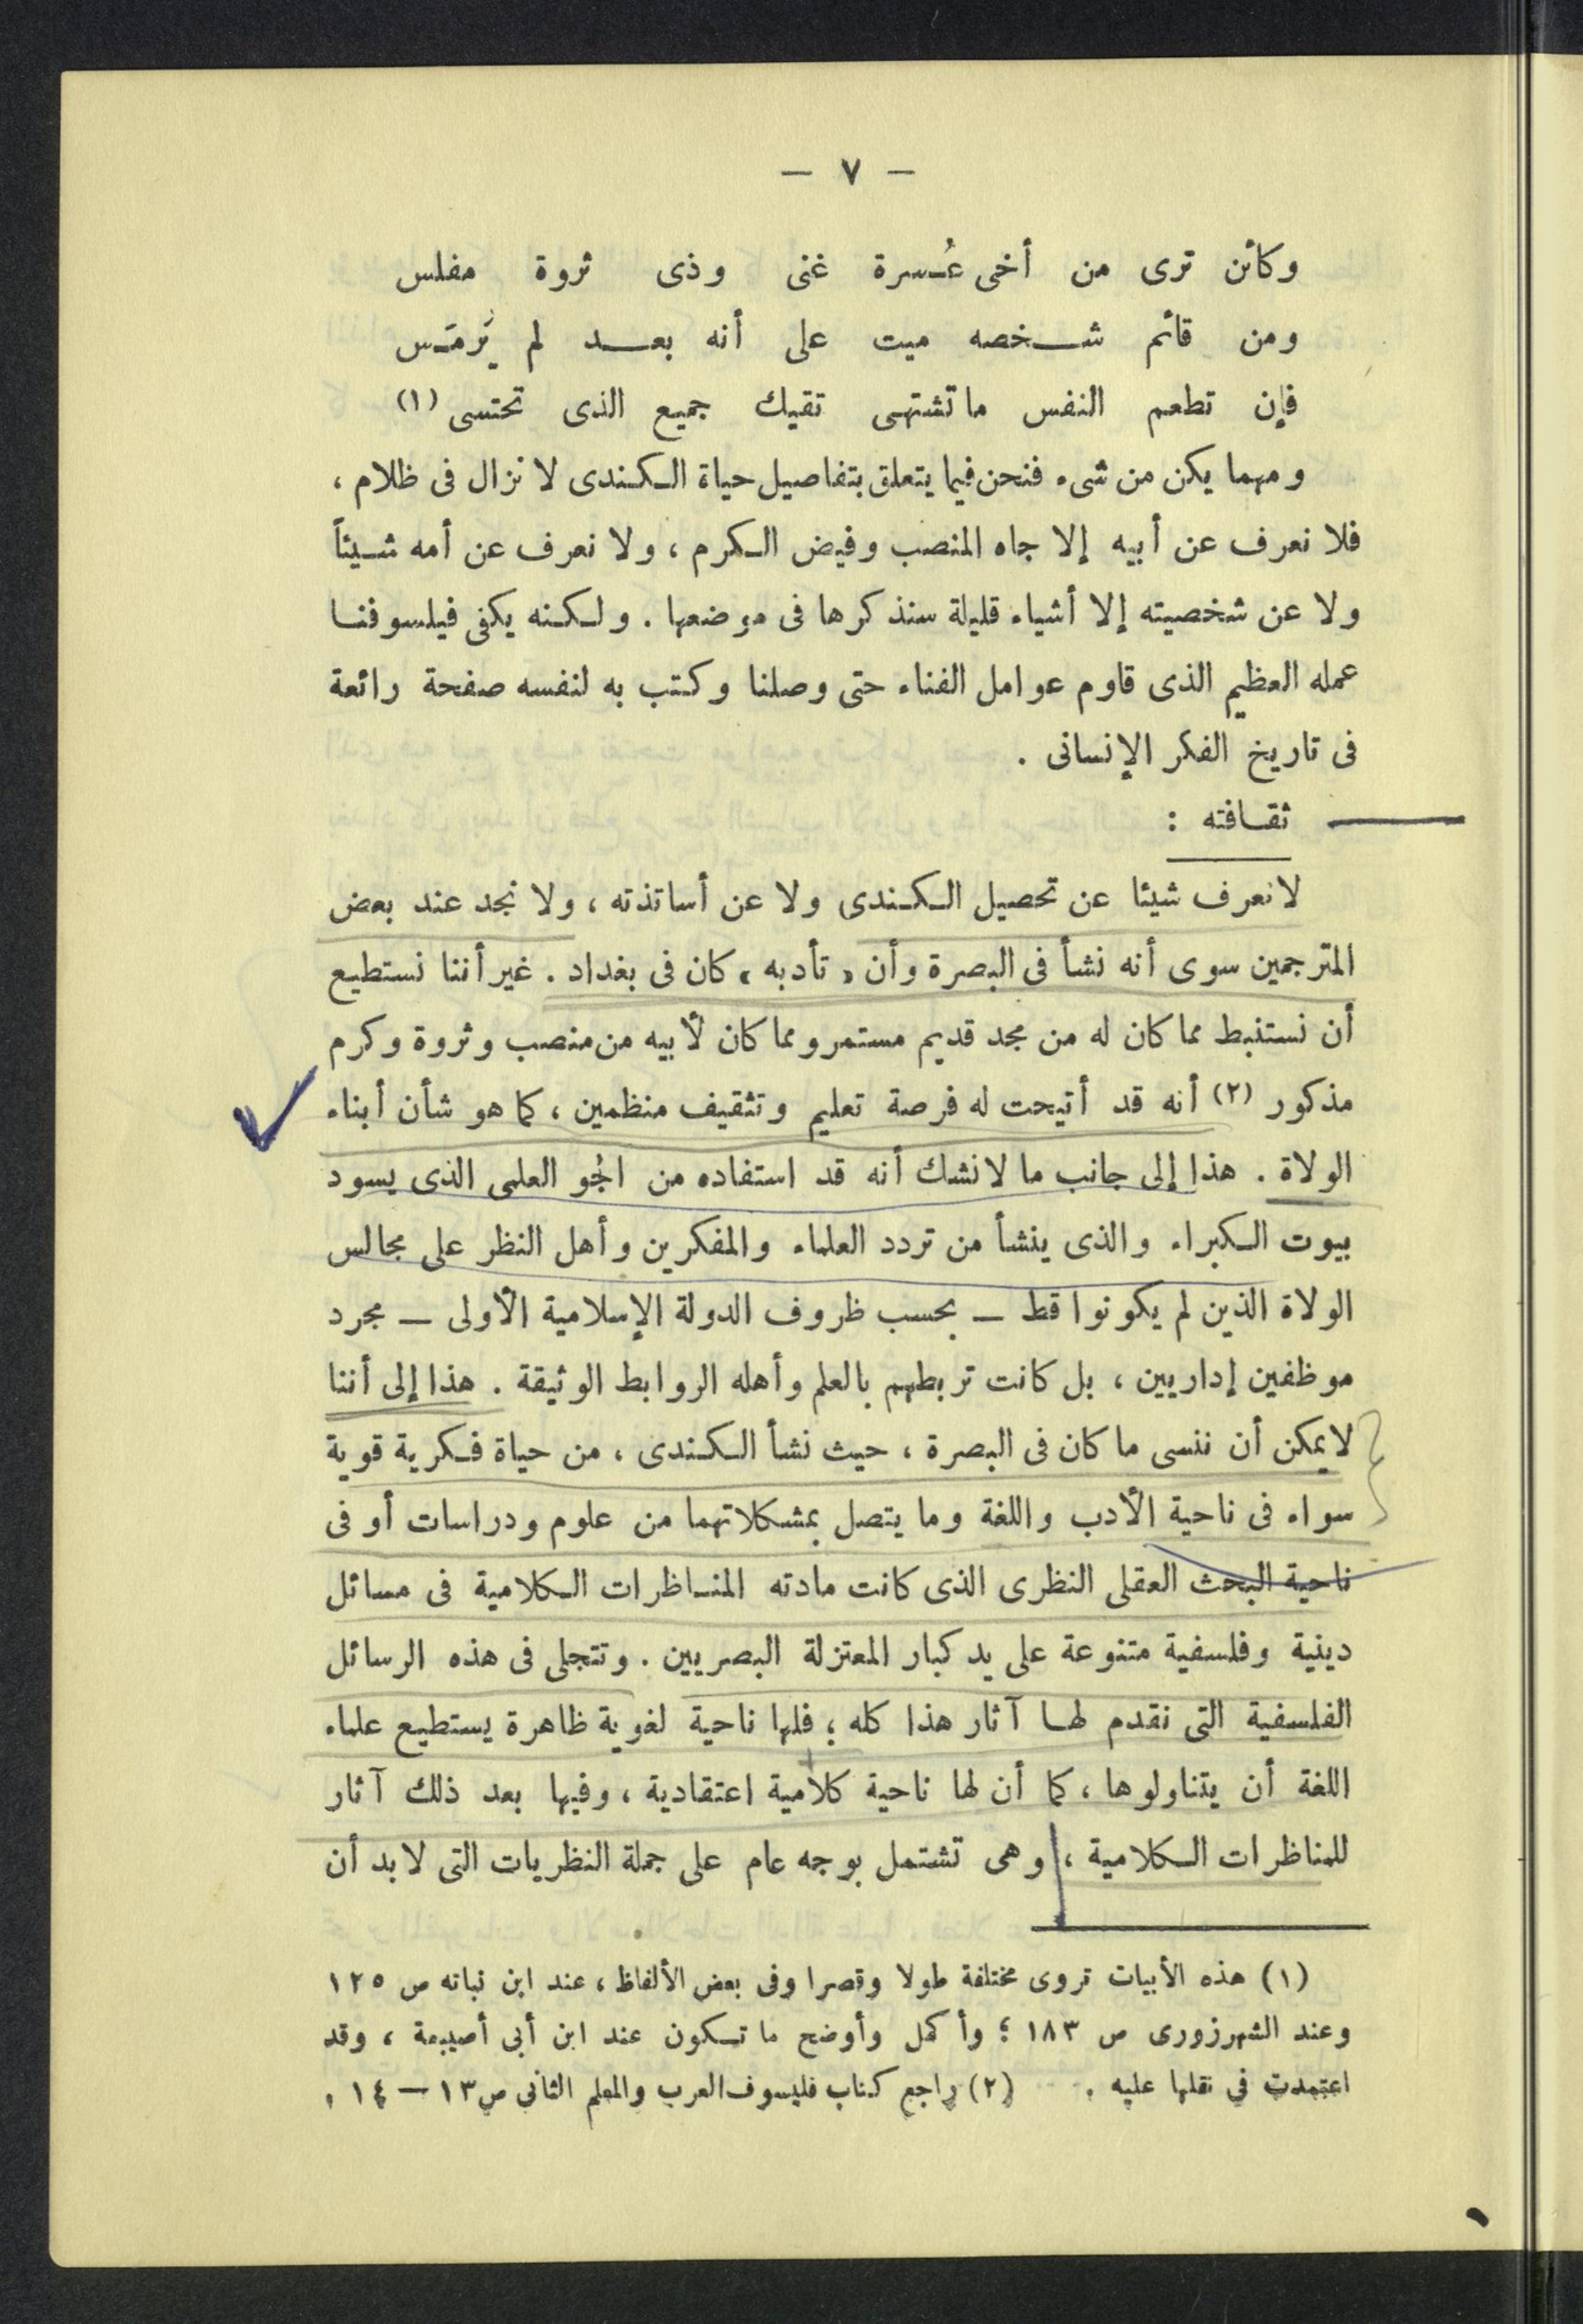 — ٧ —
وكائن ترى من أخى عُسرة غنى وذى ثروة مفلس
ومن قائم شخصه ميت على أنه بعد لم يُرمَس
فإن تطعم النفس ما تشتهى تقيك جميع الذى تحتسى (١)
ومهما يكن من شىء فنحن فيما يتعلق بتفاصيل حياة الكندى لا نزال فى ظلام ،
فلا نعرف عن أبيه إلا جاه المنصب وفيض الكرم ، ولا نعرف عن أمه شيئاً
ولا عن شخصيته إلا أشياء قليلة سنذكرها فى موضعها . ولكنه يكفى فيلسوفنا
عمله العظيم الذى قاوم عوامل الفناء حتى وصلنا وكتب به لنفسه صفحة رائعة
فى تاريخ الفكر الإنسانى .
ثقافته :
لا نعرف شيئا عن تحصيل الكندى ولا عن أساتذته ، ولا نجد عند بعض
المترجمين سوى أنه نشأ فى البصرة وأن « تأدبه » كان فى بغداد . غير أننا نستطيع
أن نستنبط مما كان له من مجد قديم مستمر ومما كان لأبيه من منصب وثروة وكرم
مذكور (٢) أنه قد أتيحت له فرصة تعليم وتثقيف منظمين ، كما هو شأن أبناء
الولاة . هذا إلى جانب ما لا نشك أنه قد استفاده من الجو العلمى الذى يسود
بيوت الكبراء والذى ينشأ من تردد العلماء والمفكرين وأهل النظر على مجالس
الولاة الذين لم يكونوا قط — بحسب ظروف الدولة الإسلامية الأولى — مجرد
موظفين إداريين ، بل كانت تربطهم بالعلم وأهله الروابط الوثيقة . هذا إلى أننا
لا يمكن أن ننسى ما كان فى البصرة ، حيث نشأ الكندى ، من حياة فكرية قوية
سواء فى ناحية الأدب واللغة وما يتصل بمشكلاتهما من علوم ودراسات أو فى
ناحية البحث العقلى النظرى الذى كانت مادته المناظرات الكلامية فى مسائل
دينية وفلسفية متنوعة على يد كبار المعتزلة البصريين . وتتجلى فى هذه الرسائل
الفلسفية التى نقدم لها آثار هذا كله ؛ فلها ناحية لغوية ظاهرة يستطيع علماء
اللغة أن يتناولوها ، كما أن لها ناحية كلامية اعتقادية ، وفيها بعد ذلك آثار
للمناظرات الكلامية ، وهى تشتمل بوجه عام على جملة النظريات التى لا بد أن
(١) هذه الأبيات تروى مختلفة طولا وقصرا وفى بعض الألفاظ ، عند ابن نباته ص ١٢٥
وعند الشهرزورى ص ١٨٣ ؛ وأكمل وأوضح ما تكون عند ابن أبى أصيبعة ، وقد
اعتمدت فى نقلها عليه . (٢) راجع كتاب فليسوف العرب والمعلم الثانى ص ١٣ — ١٤ .